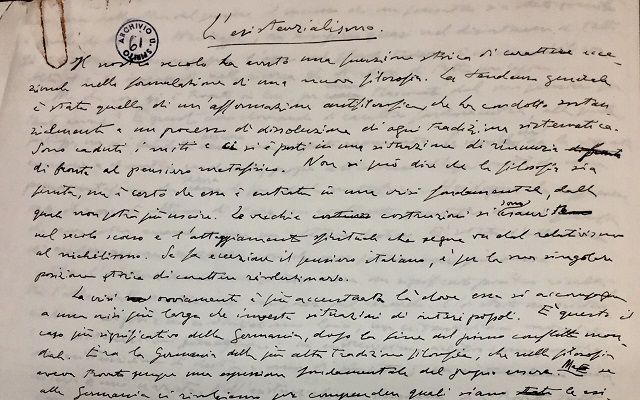 ARCHIVIO U. SPIRITO
61
L'esistenzialismo.
Il nostro secolo ha avuto una funzione storica di carattere ecce-
zionale nella formulazione di una nuova filosofia. La tendenza generale
è stata quella di un'affermazione antifilosofica, che ha condotto sostan-
zialmente a un processo di dissoluzione di ogni tradizione sistematica.
Sono caduti i miti e ci si è posti in una situazione di rinuncia
di fronte al pensiero metafisico. Non si può dire che la filosofia sia
finita, ma è certo che essa è entrata in una crisi fondamentale, dalla
quale non potrà più uscire. Le vecchie costruzioni si sono esaurite
nel secolo scorso e l'atteggiamento spirituale che segue va dal relativismo
al nichilismo. Se fa eccezione il pensiero italiano, è per la sua singolare
posizione storica di carattere rivoluzionario.
La crisi ovviamente è più accentuata là dove essa si accompagna
a una crisi più larga che investe situazioni di interi popoli. È questo il
caso più significativo della Germania, dopo la fine del primo conflitto mon-
diale. Era la Germania della più alta tradizione filosofica, che nella filosofia
aveva trovato sempre una espressione fondamentale del proprio essere. Ma
alla Germania ci rivolgiamo per comprendere quali siano le esi-